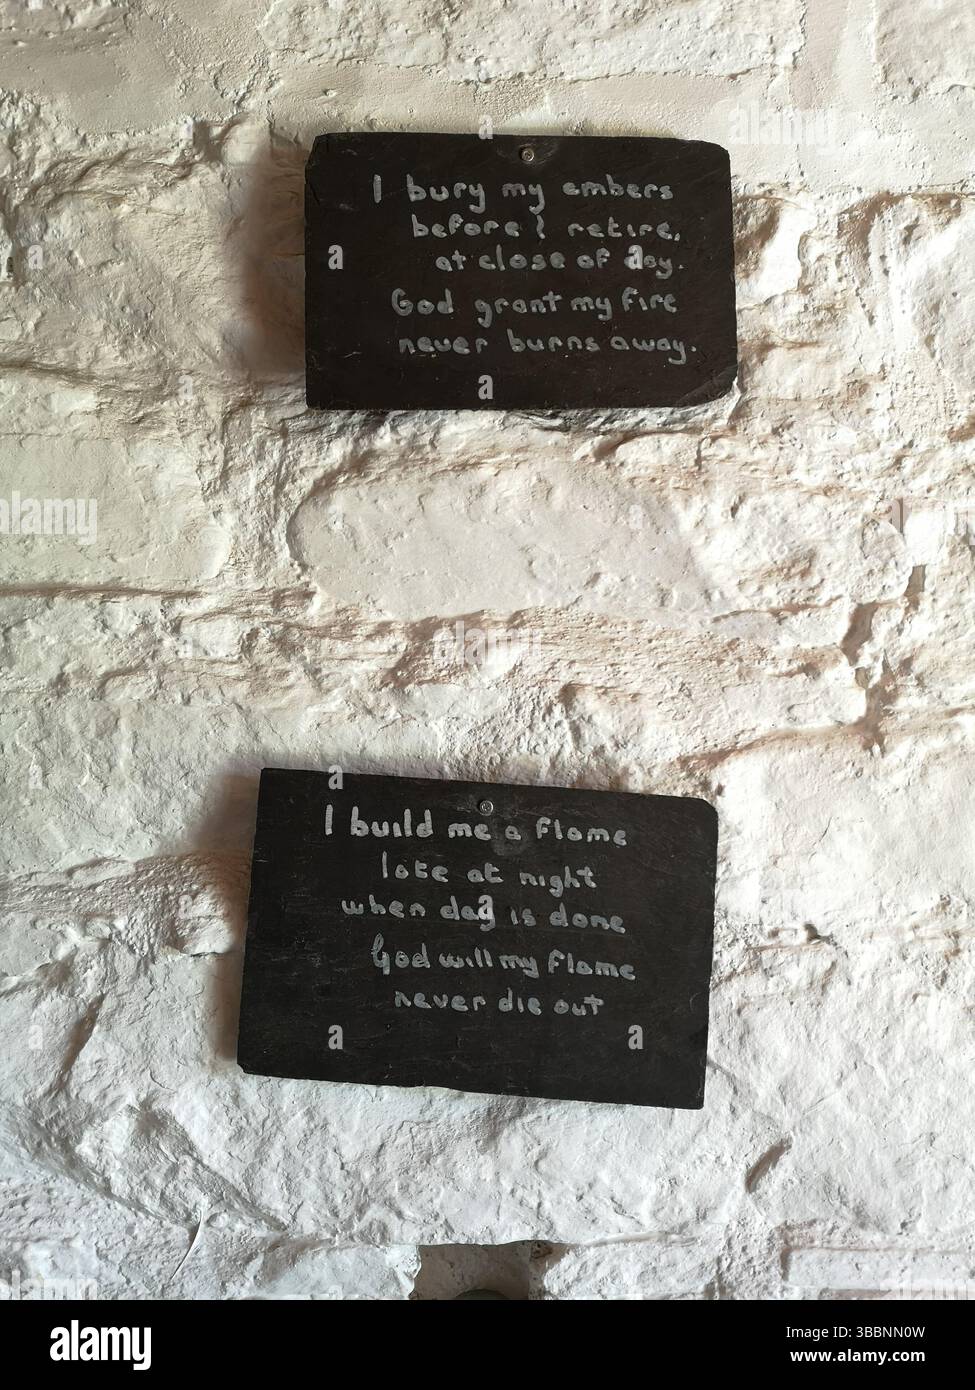 I bury my embers
before I retire,
at close of day.
God grant my fire
never burns away.
I build me a flame
late at night
when day is done
God will my flame
never die out
alamy
Image ID: 3BBNN0W
www.alamy.com